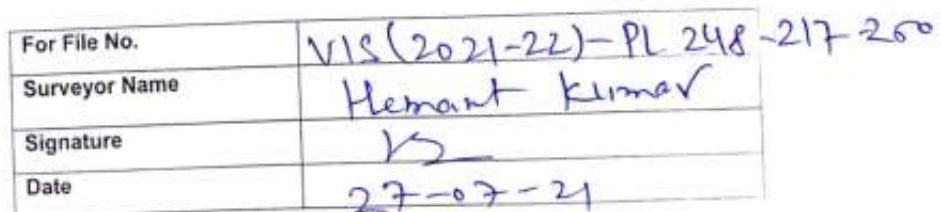 For File No. VIS(2021-22)-PL 248-217-260
Surveyor Name Hemant Kumar
Signature
Date 27-07-21